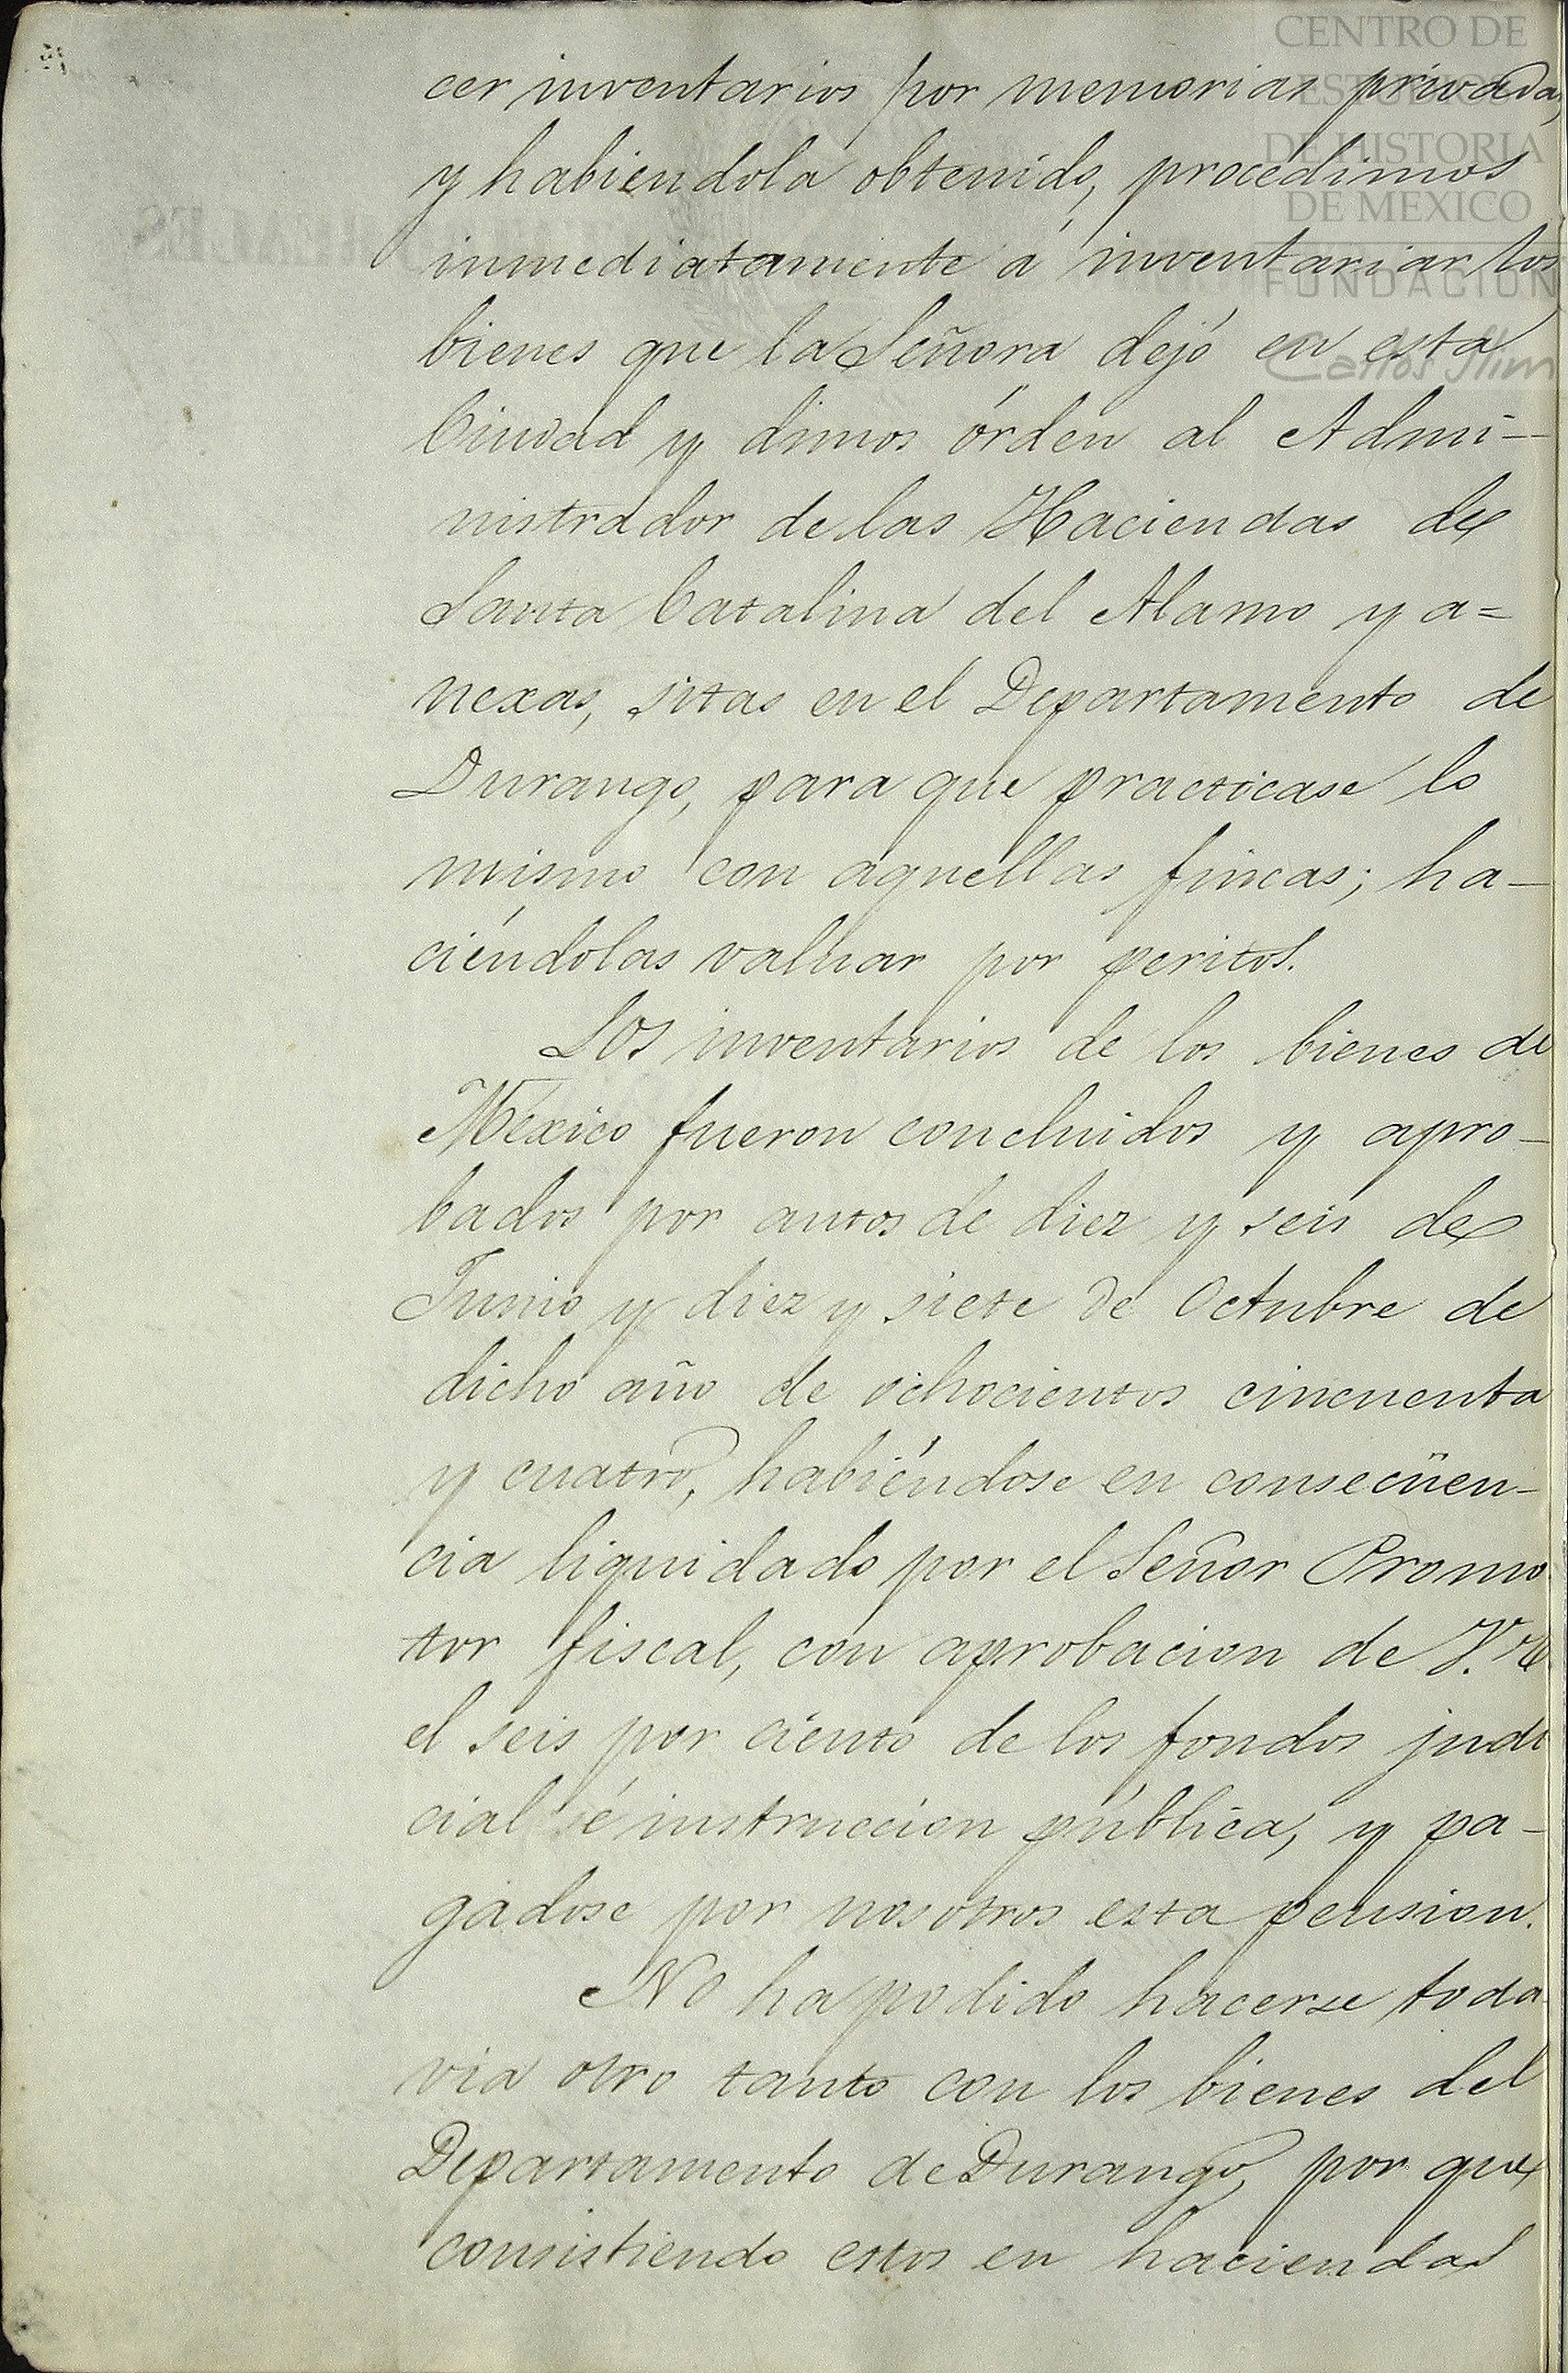 CENTRO DE
ESTUDIOS
DE HISTORIA
DE MEXICO
FUNDACION
Carlos Slim
cer inventarios por memorias privadas,
y habiendola obtenido, procedimos
inmediatamente á inventariar los
bienes que la Señora dejó en esta
Ciudad y dimos órden al Admi-
nistrador de las Haciendas de
Santa Catalina del Alamo y a=
nexas, sitas en el Departamento de
Durango, para que practicase lo
mismo con aquellas fincas; ha-
ciéndolas valuar por peritos.
Los inventarios de los bienes de
México fueron concluidos y apro-
bados por autos de diez y seis de
Junio y diez y siete de Octubre de
dicho año de ochocientos cincuenta
y cuatro, habiéndose en consecüen-
cia liquidado por el Señor Promo
tor fiscal, con aprobacion de V.
el seis por ciento de los fondos judi
cial é instruccion pública, y pa-
gadose por nosotros esta pension.
No ha podido hacerse toda
via otro tanto con los bienes del
Departamento de Durango, por que
consistiendo estos en haciendas